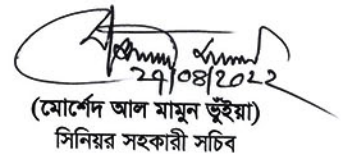 29/08/2022
(মোর্শেদ আল মামুন ভূঁইয়া)
সিনিয়র সহকারী সচিব